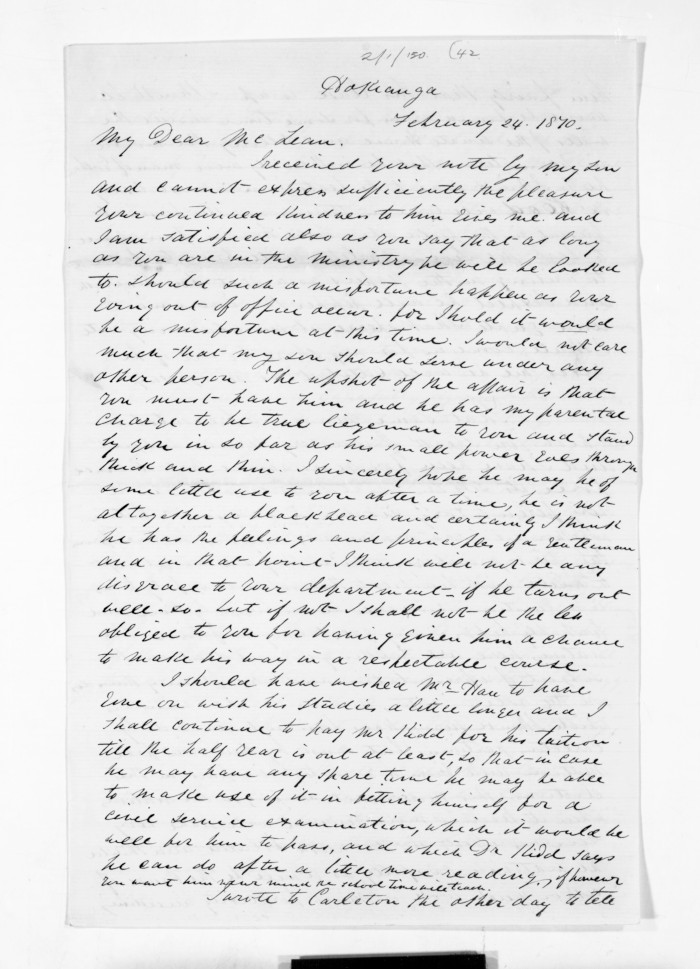 2/1/150 (42
Hokianga
February 24. 1870.
My Dear McLean.
I received your note by my son
and cannot express sufficiently the pleasure
your continued kindness to him gives me and
I am satisfied also as you say that as long
as you are in the ministry he will be looked
to. should such a misfortune happen as your
going out of office occur. for I hold it would
be a misfortune at this time. I would not care
much that my son should serve under any
other person. The upshot of the affair is that
you must have him and he has my parental
charge to be true liegeman to you and stand
by you in so far as his small power goes through
thick and thin. I sincerely hope he may be of
some little use to you after a time, he is not
altogether a blockhead and certainly I think
he has the feelings and principles of a gentleman
and in that point I think will not be any
disgrace to your department - if he turns out
well - so - but if not I shall not be the less
obliged to you for having given him a chance
to make his way in a respectable course.
I should have wished Mr Hau to have
gone on with his studies a little longer and I
shall continue to pay Mr Kidd for his tuition
till the half year is out at least, so that in case
he may have any spare time he may be able
to make use of it in fitting himself for a
civil service examination, which it would be
well for him to pass, and which Dr Kidd says
he can do after a little more reading, if however
you want him never mind the school time will teach.
I wrote to Carleton the other day to tell